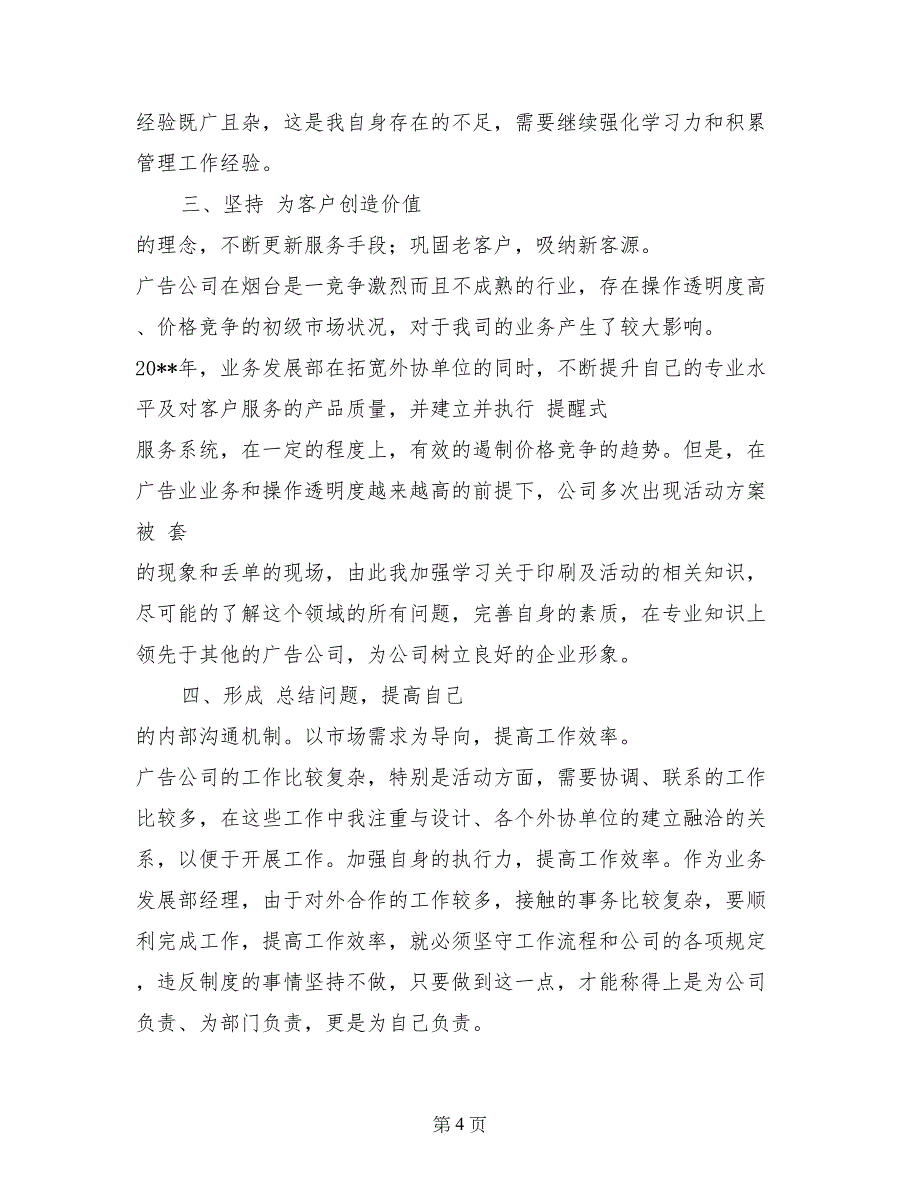 经验既广且杂，这是我自身存在的不足，需要继续强化学习力和积累
管理工作经验。
三、坚持 为客户创造价值
的理念，不断更新服务手段；巩固老客户，吸纳新客源。
广告公司在烟台是一竞争激烈而且不成熟的行业，存在操作透明度高
、价格竞争的初级市场状况，对于我司的业务产生了较大影响。
20**年，业务发展部在拓宽外协单位的同时，不断提升自己的专业水
平及对客户服务的产品质量，并建立并执行 提醒式
服务系统，在一定的程度上，有效的遏制价格竞争的趋势。但是，在
广告业业务和操作透明度越来越高的前提下，公司多次出现活动方案
被 套
的现象和丢单的现场，由此我加强学习关于印刷及活动的相关知识，
尽可能的了解这个领域的所有问题，完善自身的素质，在专业知识上
领先于其他的广告公司，为公司树立良好的企业形象。
四、形成 总结问题，提高自己
的内部沟通机制。以市场需求为导向，提高工作效率。
广告公司的工作比较复杂，特别是活动方面，需要协调、联系的工作
比较多，在这些工作中我注重与设计、各个外协单位的建立融洽的关
系，以便于开展工作。加强自身的执行力，提高工作效率。作为业务
发展部经理，由于对外合作的工作较多，接触的事务比较复杂，要顺
利完成工作，提高工作效率，就必须坚守工作流程和公司的各项规定
，违反制度的事情坚持不做，只要做到这一点，才能称得上是为公司
负责、为部门负责，更是为自己负责。
第 4 页